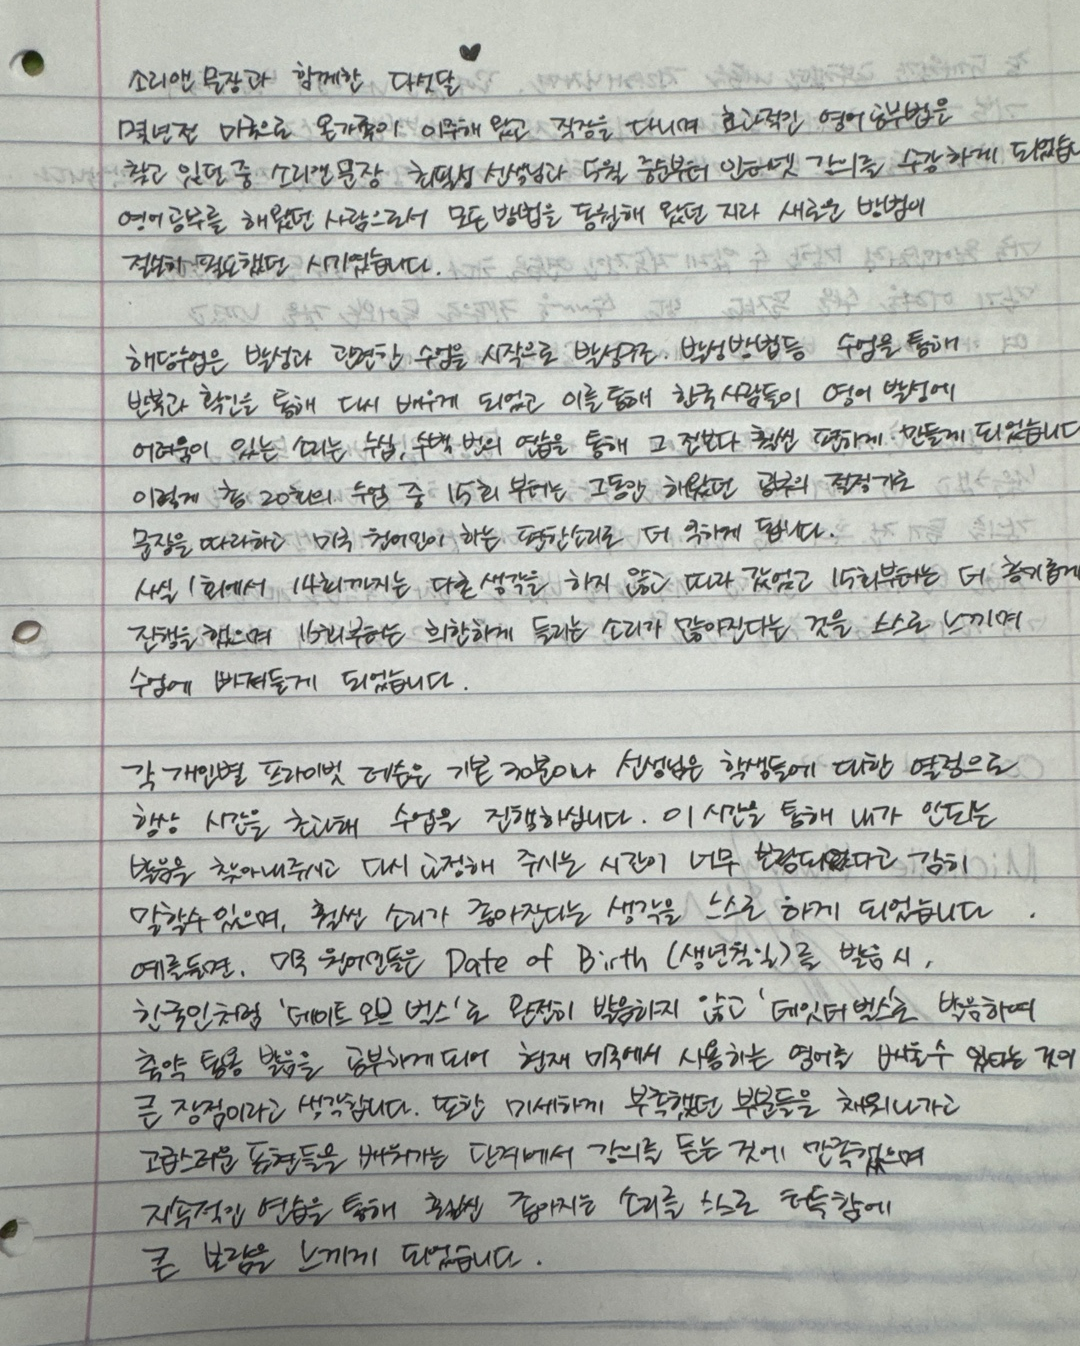 소리앤 문장과 함께한 다섯달 ♥
몇년전 미국으로 온가족이 이주해 왔고 직장을 다니며 효과적인 영어 공부법은
찾고 있던 중 소리앤문장 선생님과 중순부터 인터넷 강의를 수강하게 되었습
영어공부를 해왔던 사람으로서 모든 방법을 동원해 왔던 지라 새로운 방법이
절실히 필요했던 시기였습니다.
해당수업은 발성과 관련한 수업을 시작으로 발성위주. 발성방법등 수업을 통해
반복과 확인을 통해 다시 배우게 되었고 이를 통해 한국사람들이 영어 발성에
어려움이 있는 소리는 수십, 수백 번의 연습을 통해 그 전보다 훨씬 편하게 만들게 되었습니다
이렇게 총 20회의 수업 중 15회 부터는 그동안 해왔던 절정기로
문장을 따라하고 미국 원어민이 하는 편한소리로 더 하게 됩니다.
사실 1회에서 14회까지는 다른 생각을 하지 않고 따라 갔었고 15회부터는 더 흥미롭게
진행을 했으며 부터는 희한하게 들리는 소리가 많아진다는 것을 스스로 느끼며
수업에 빠져들게 되었습니다.
각 개인별 프라이빗 레슨은 기본 30분이나 선생님은 학생들에 대한 열정으로
항상 시간을 초과해 수업을 진행하십니다. 이 시간을 통해 내가 안되는
발음을 찾아내주시고 다시 교정해 주시는 시간이 너무 보람되었다고 감히
말할수 있으며, 훨씬 소리가 좋아진다는 생각을 스스로 하게 되었습니다.
예를들면, 미국 원어민들은 Date of Birth (생년월일)를 발음 시,
한국인처럼 '데이트 오브 벌스'로 완전히 발음하지 않고 '데잇터벌스'로 발음하며
축약 발음을 공부하게되어 현재 미국에서 사용하는 영어를 배울수 있다는 것이
큰 장점이라고 생각합니다. 또한 미세하게 부족했던 부분들을 채워나가고
고급스러운 표현들을 배워가는 단계에서 강의를 듣는 것에 만족했으며
지속적인 연습을 통해 훨씬 좋아지는 소리를 스스로 터득함에
큰 보람을 느끼게 되었습니다.